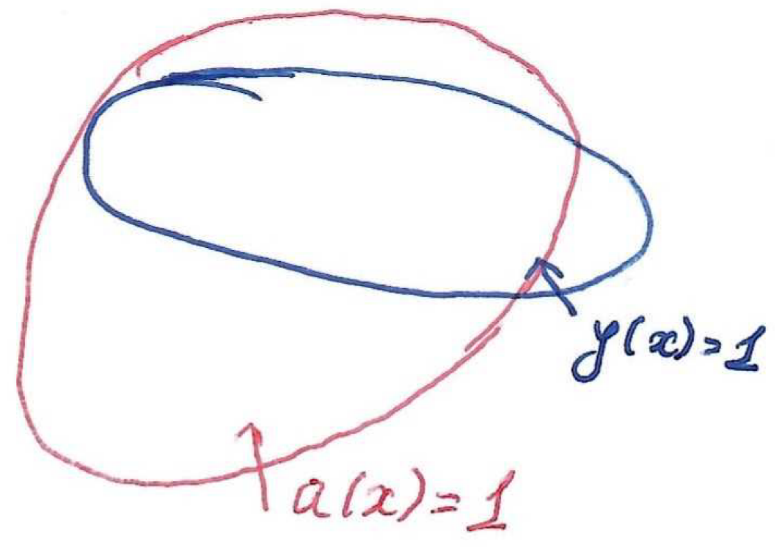 y(x)=1
a(x)=1